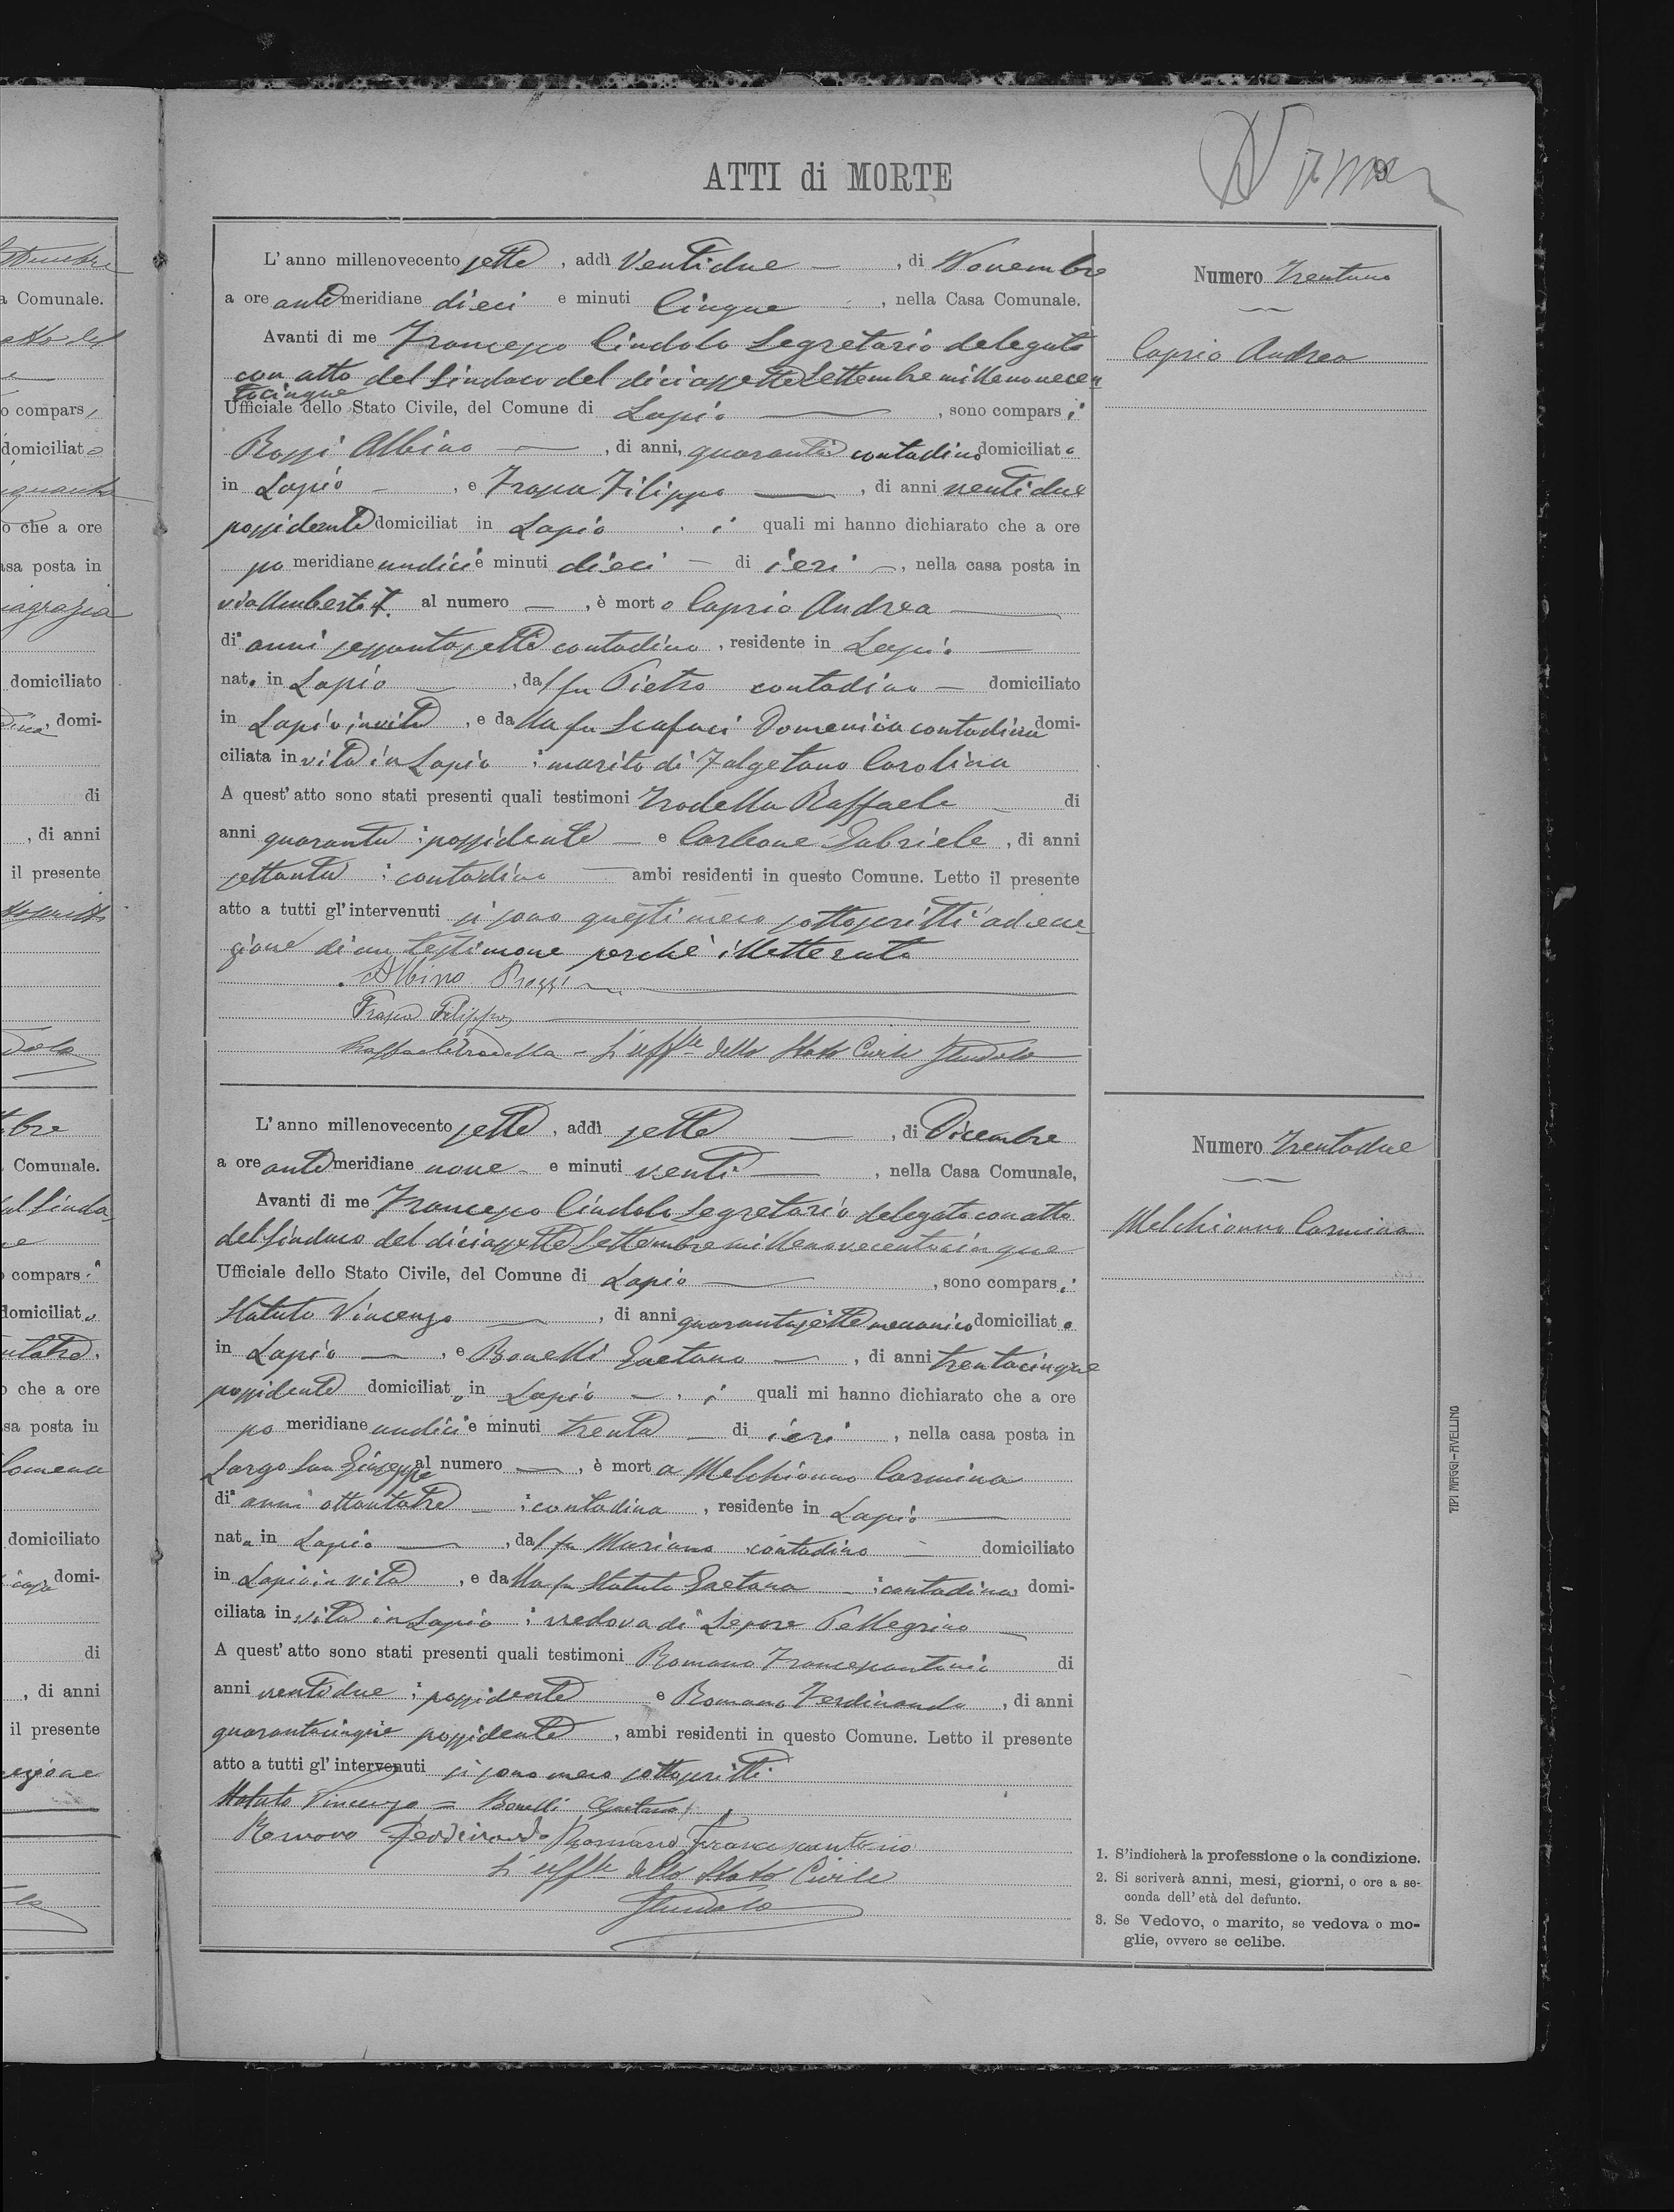 ATTI di MORTE
L'anno millenovecento sette, addì Ventidue —, di Novembre
a ore antemeridiane dieci e minuti Cinque —, nella Casa Comunale.
Avanti di me Francesco Cindolo Segretario delegato
con atto del Sindaco del diciassette Settembre millenovecen
tocinque
Ufficiale dello Stato Civile, del Comune di Lapio —, sono comparsi
Rossi Albino —, di anni, quaranta contadino domiciliato
in Lapio —, e Frasca Filippo —, di anni ventidue
possidente domiciliat in Lapio, i quali mi hanno dichiarato che a ore
pomeridiane undici e minuti dieci — di ieri —, nella casa posta in
via Umberto I. al numero —, è morto Caprio Andrea —
di anni sessantasette contadino, residente in Lapio —
nato in Lapio —, dal fu Pietro contadino — domiciliato
in Lapio in vita, e dalla fu Scafuci Domenica contadina domi-
ciliata in vita in Lapio; marito di Falgetano Carolina
A quest'atto sono stati presenti quali testimoni Trodella Raffaele — di
anni quaranta; possidente — e Carbone Gabriele, di anni
settanta; contadino — ambi residenti in questo Comune. Letto il presente
atto a tutti gl'intervenuti si sono questi meco sottoscritti ad ecce-
zione di un testimone perchè illetterato
Albino Rossi
Frasca Filippo
Raffaele Trodella = L'uff.le dello Stato Civile FCindolo
Numero Trentuno
Caprio Andrea
L'anno millenovecento sette, addì sette —, di Dicembre
a ore antemeridiane nove — e minuti venti —, nella Casa Comunale,
Avanti di me Francesco Cindolo Segretario delegato con atto
del Sindaco del diciassette Settembre millenovecentocinque
Ufficiale dello Stato Civile, del Comune di Lapio —, sono comparsi
Statuto Vincenzo —, di anni quarantasette meccanico domiciliato
in Lapio —, e Bonelli Gaetano —, di anni trentacinque
possidente domiciliato in Lapio —, i quali mi hanno dichiarato che a ore
pomeridiane undici e minuti trenta — di ieri, nella casa posta in
Largo San Giuseppe al numero —, è morta Melchionno Carmina
di anni ottantatre —; contadina, residente in Lapio —
nata in Lapio —, dal fu Mariano contadino — domiciliato
in Lapio in vita, e dalla fu Statuto Gaetana —; contadina domi-
ciliata in vita in Lapio; vedova di Lepore Pellegrino —
A quest'atto sono stati presenti quali testimoni Romano Francescantonio di
anni ventidue; possidente e Romano Ferdinando, di anni
quarantacinque possidente, ambi residenti in questo Comune. Letto il presente
atto a tutti gl'intervenuti si sono meco sottoscritti
Statuto Vincenzo = Bonelli Gaetano
Romano Ferdinando Romano Francescantonio
L'uff.le dello Stato Civile
FCindolo
Numero Trentadue
Melchionno Carmina
1. S'indicherà la professione o la condizione.
2. Si scriverà anni, mesi, giorni, o ore a se-
conda dell'età del defunto.
3. Se Vedovo, o marito, se vedova o mo-
glie, ovvero se celibe.
TIPI MAGGI-AVELLINO